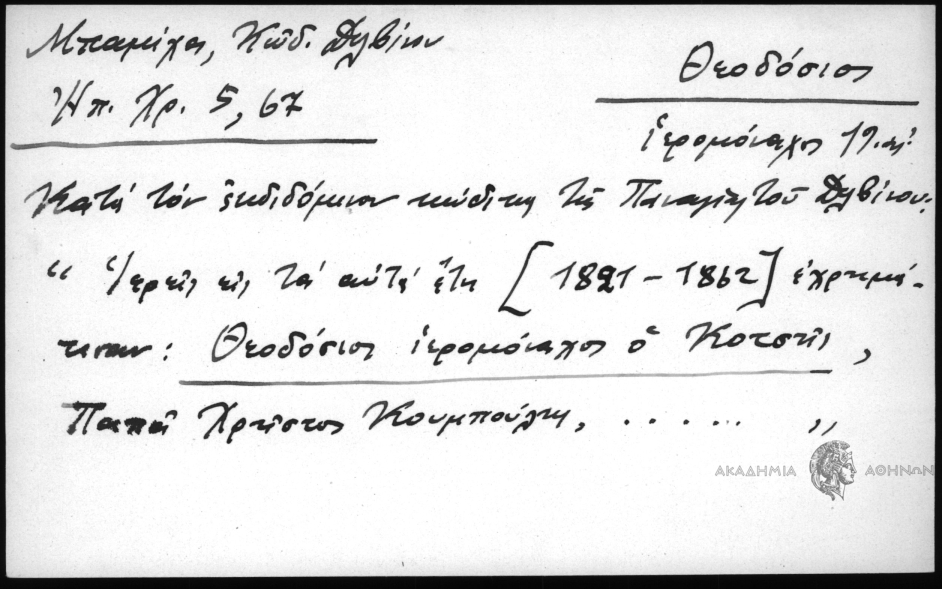 Μπαμίχα, Κώδ. Δηβίνου
Ἠπ. Χρ. 5, 67
Θεοδόσιος
ἱερομόναχος 19. αἰ.
Κατὰ τὸν ἐκδιδόμενον κώδικα τῆς Παναγίας τοῦ Δηβίνου:
"Ἱερεῖς εἰς τὰ αὐτὰ ἔτη [1821-1862] ἐχρημά-
τισαν: Θεοδόσιος ἱερομόναχος ὁ Κοτσῆς,
Παπᾶ Χρῆστος Κουμπούλης, ........ "
ΑΚΑΔΗΜΙΑ ΑΘΗΝΩΝ